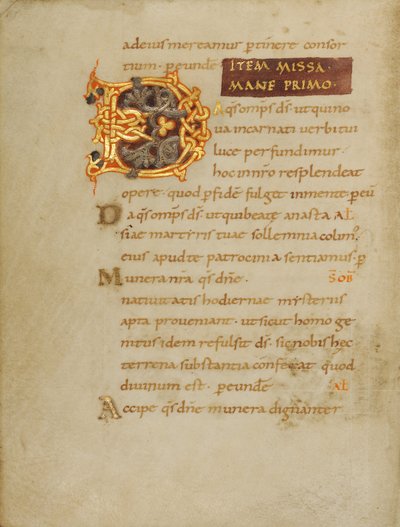 adeius mereamur pertinere consor
tium · peundē
ITEM MISSA
MANE PRIMO ·
D A q̄s omp̄s d̄s · ut qui no
va incarnati verbi tui
luce perfundimur ·
hoc in nr̄o resplendeat
opere · quod p fidē fulget in mente · p eu
Da q̄s omp̄s d̄s · ut qui beatę anastā AL
siae martyris tuae sollemnia colim᷒
eius apud te patrocinia sentiamus · p
Munera nr̄a q̄s dn̄e · S̄OB̄
nativitatis hodiernae mysteriis
apta proveniant · ut sicut homo ge
nitus idem refulsit d̄s · sic nobis hęc
terrena substantia conferat quod
divinum est · peundē AL
Accipe q̄s dn̄e munera dignanter